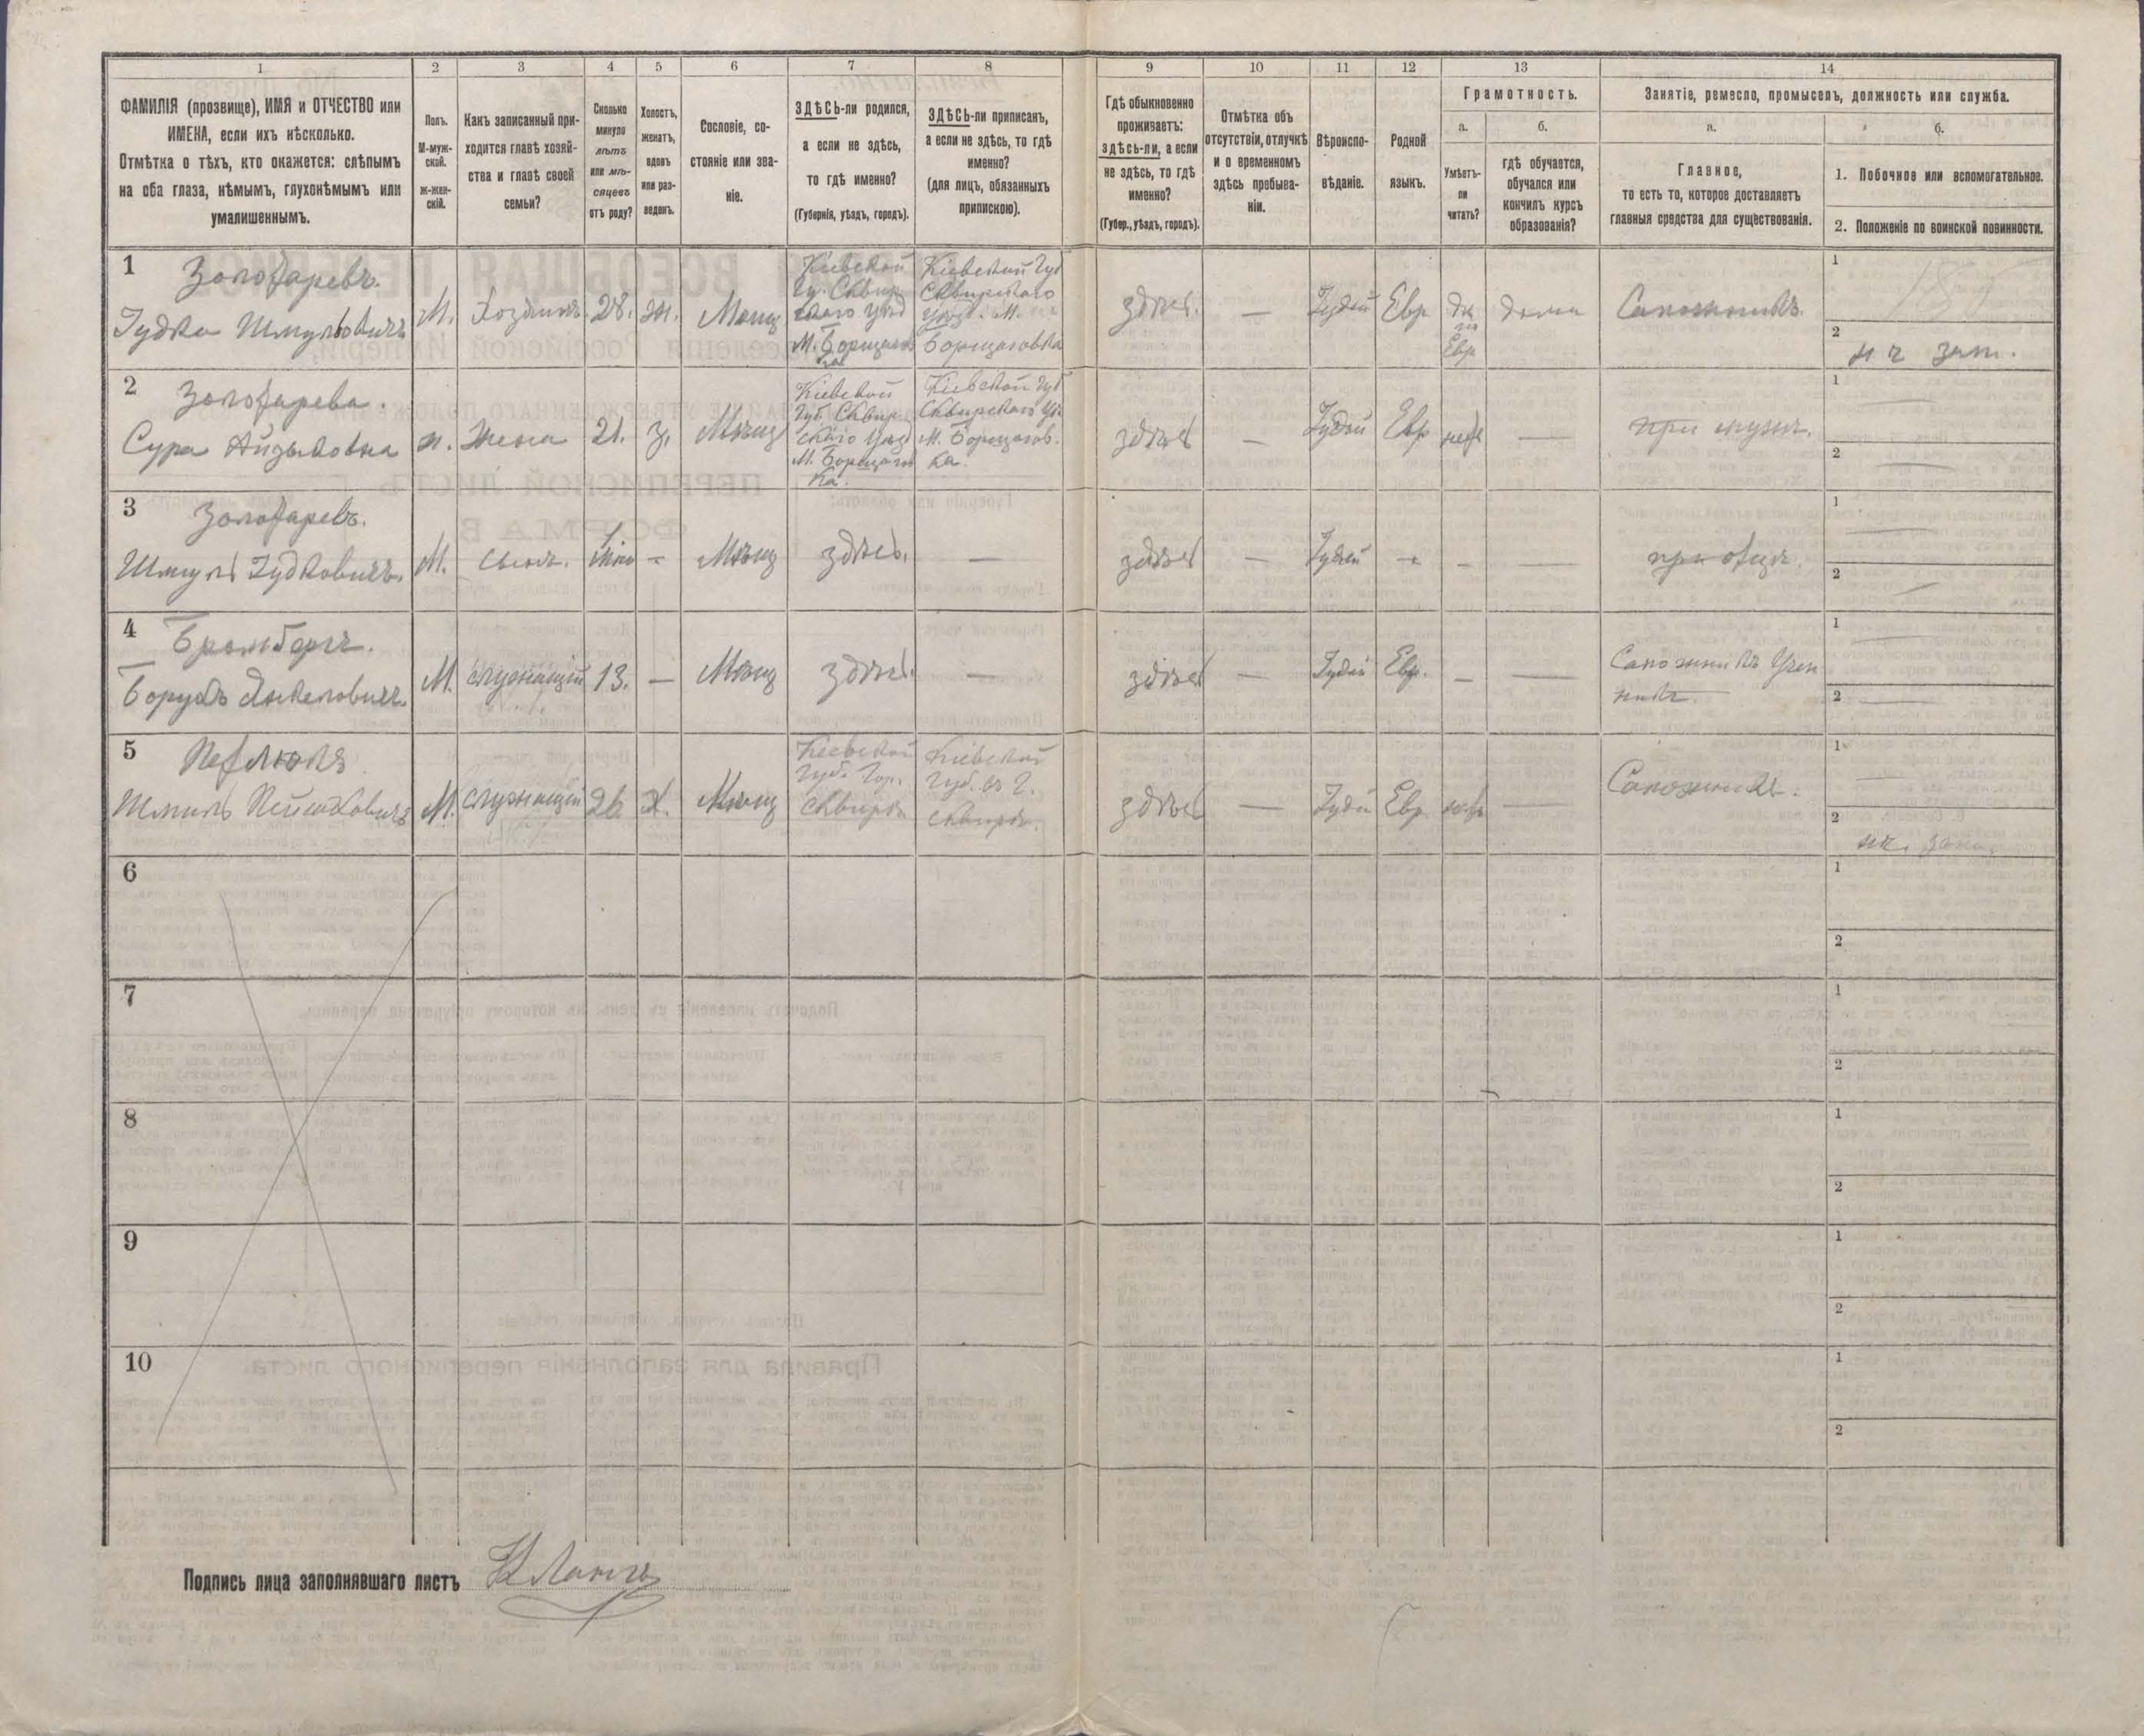 1
2
3
4
5
6
7
8
9
10
11
12
13
14
ФАМИЛІЯ (прозвище), ИМЯ и ОТЧЕСТВО или
ИМЕНА, если ихъ нѣсколько.
Отмѣтка о тѣхъ, кто окажется: слѣпымъ
на оба глаза, нѣмымъ, глухонѣмымъ или
умалишеннымъ.
Полъ.
М-муж-
ской.
ж-жен-
скій.
Какъ записанный при-
ходится главѣ хозяй-
ства и главѣ своей
семьи?
Сколько
минуло
лѣтъ
или мѣ-
сяцевъ
отъ роду?
Холостъ,
женатъ,
вдовъ
или раз-
веденъ.
Сословіе, со-
стояніе или зва-
ніе.
ЗДѢСЬ-ли родился,
а если не здѣсь,
то гдѣ именно?
(Губернія, уѣздъ, городъ).
ЗДѢСЬ-ли приписанъ,
а если не здѣсь, то гдѣ
именно?
(для лицъ, обязанныхъ
припискою).
Гдѣ обыкновенно
проживаетъ:
здѣсь-ли, а если
не здѣсь, то гдѣ
именно?
(Губер., уѣздъ, городъ).
Отмѣтка объ
отсутствіи, отлучкѣ
и о временномъ
здѣсь пребыва-
ніи.
Вѣроиспо-
вѣданіе.
Родной
языкъ.
Грамотность.
а.
Умѣетъ-
ли
читать?
б.
гдѣ обучается,
обучался или
кончилъ курсъ
образованія?
Занятіе, ремесло, промыселъ, должность или служба.
а.
Главное,
то есть то, которое доставляетъ
главныя средства для существованія.
б.
1. Побочное или вспомогательное.
2. Положеніе по воинской повинности.
1
Золотаревъ.
Іудка Шмульовичъ
М.
Хозяинъ.
28.
ж.
Мѣщ
Кіевской
Гу. Сквир
скаго уѣзд
М. Борщагов
ка
Кіевской Губ
Сквирскаго
уѣзд. М.
Борщаговка
здѣсь.
—
Іудей
Евр
да
по
Евр
дома
Сапожникъ.
1
2
2
Золотарева.
Сура Айзыковна
ж.
Жена
21.
З.
Мѣщ
Кіевской
Губ. Сквир
скаго уѣзд
М. Борщагов
ка.
Кіевской Губ
Сквирскаго уѣ
М. Борщагов.
ка.
здѣсь
—
Іудей
Евр
нетъ
—
при мужѣ.
1
2
3
Золотаревъ.
Шмуль Іудковичъ.
М.
сынъ.
-
Мѣщ
здѣсь.
—
здѣсь
—
Іудей
-
-
—
при отцѣ.
1
2
4
Бромбергъ.
Борухъ Янкеловичъ.
М.
служащій
13.
—
Мѣщ
здѣсь.
—
здѣсь
—
Іудей
Евр.
-
—
Сапожникъ Учен
никъ.
1
2
5
Петлюкъ
Шмиль Пейсаховичъ
М.
служащій
26.
Х.
Мѣщ
Кіевской
Губ. Гор.
Сквира
Кіевской
Губ. въ Г.
Сквирѣ.
здѣсь
—
Іудей
Евр
—
Сапожникъ.
1
2
6
1
2
7
1
2
8
1
2
9
1
2
10
1
2
Подпись лица заполнявшаго листъ